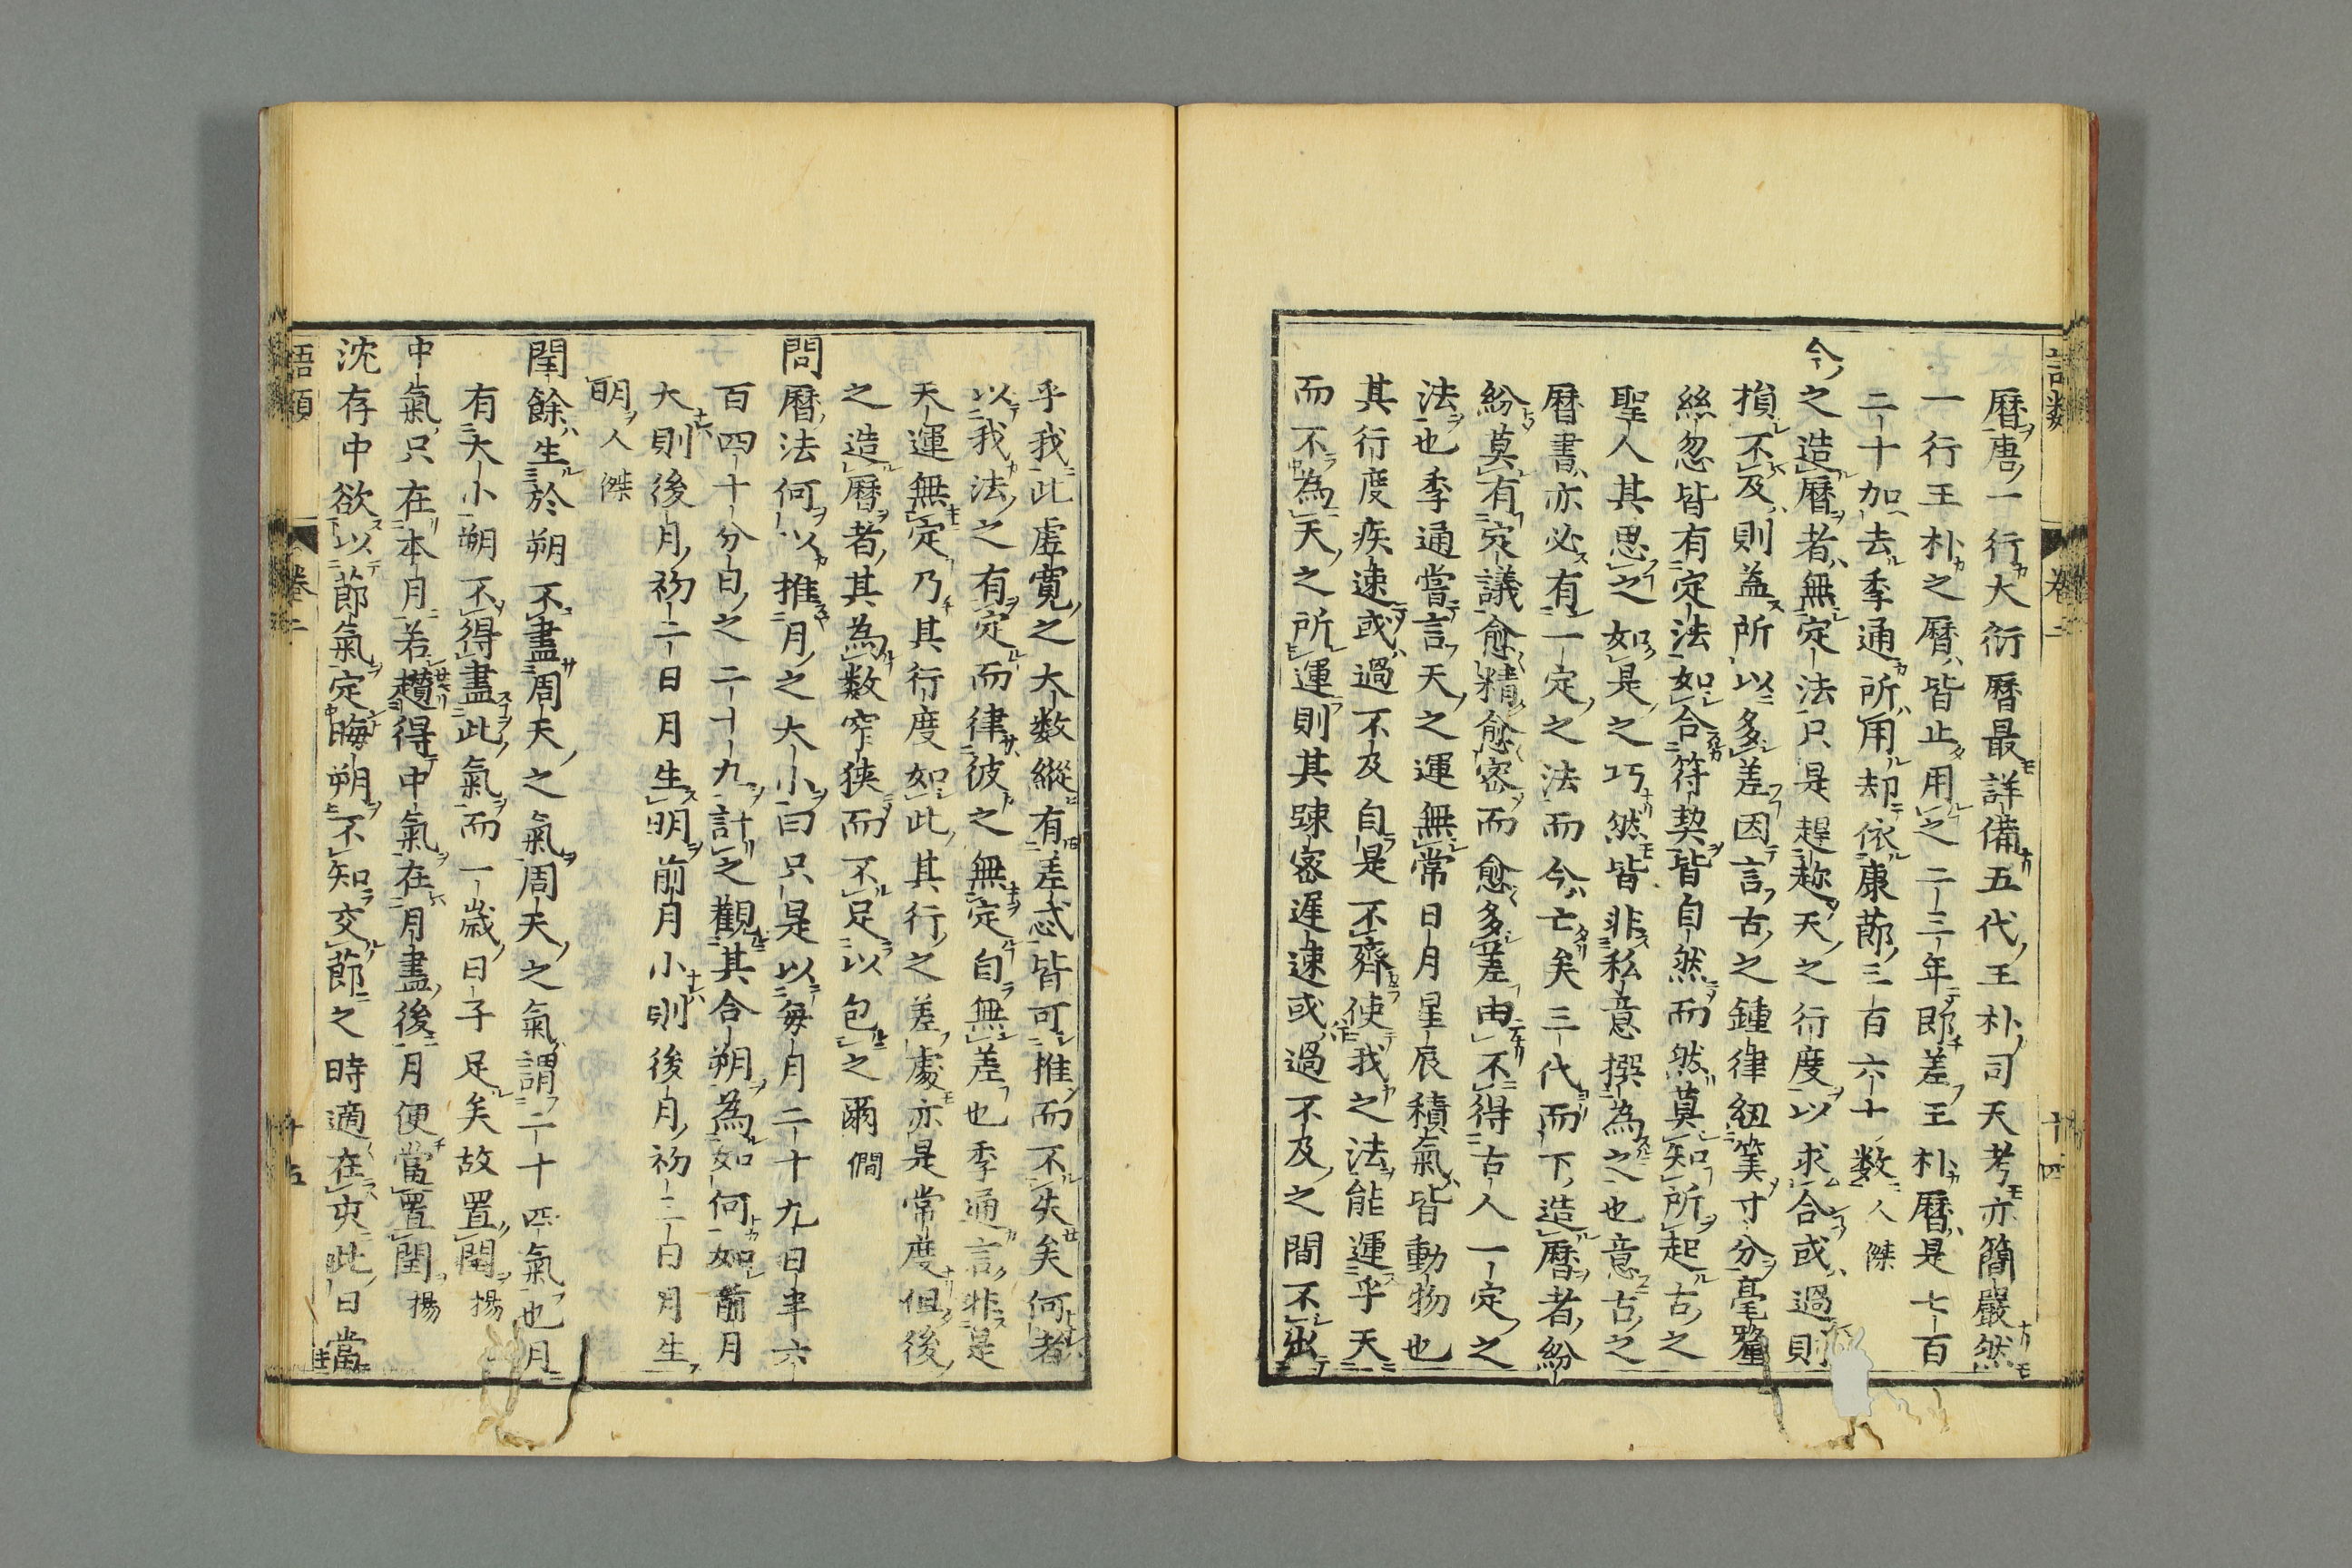 語類 卷二 十四
曆唐一行大衍曆最詳備五代王朴司天考亦簡嚴然
一行王朴之曆皆止用之二三年即差王朴曆是七百
二十加去季通所用却依康節三百六十數人傑
今之造曆者無定法只是趕趂天之行度以求合或過則
損不及則益所以多差因言古之鍾律紐筭寸分毫釐
絲忽皆有定法如合符契皆自然而然莫知所起古之
聖人其思之如是之巧然皆非私意撰為之也意古之
曆書亦必有一定之法而今亡矣三代而下造曆者紛
紛莫有定議愈精愈密而愈多差由不得古人一定之
法也季通嘗言天之運無常日月星辰積氣皆動物也
其行度疾速或過不及自是不齊使我之法能運乎天
而不為天之所運則其踈密遲速或過不及之間不出
乎我此虛寬之大數縱有差忒皆可推而不失矣何者
以我法之有定而律彼之無定自無差也季通言非是
天運無定乃其行度如此其行之差處亦是常度但後
之造曆者其為數窄狹而不足以包之爾僩
問曆法何以推月之大小曰只是以每月二十九日半六
百四十分日之二十九計之觀其合朔為如何如前月
大則後月初二日月生明前月小則後月初三日月生
明人傑
閏餘生於朔不盡周天之氣周天之氣謂二十四氣也月
有大小朔不得盡此氣而一歲日子足矣故置閏揚
中氣只在本月若趲得中氣在月盡後月便當置閏揚
沈存中欲以節氣定晦朔不知交節之時適在亥此日當
語類 卷二 十五